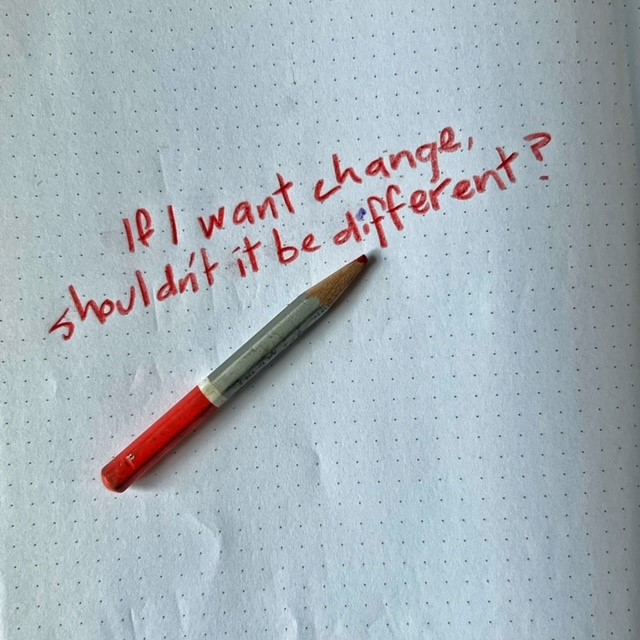 If I want change,
shouldn't it be different?